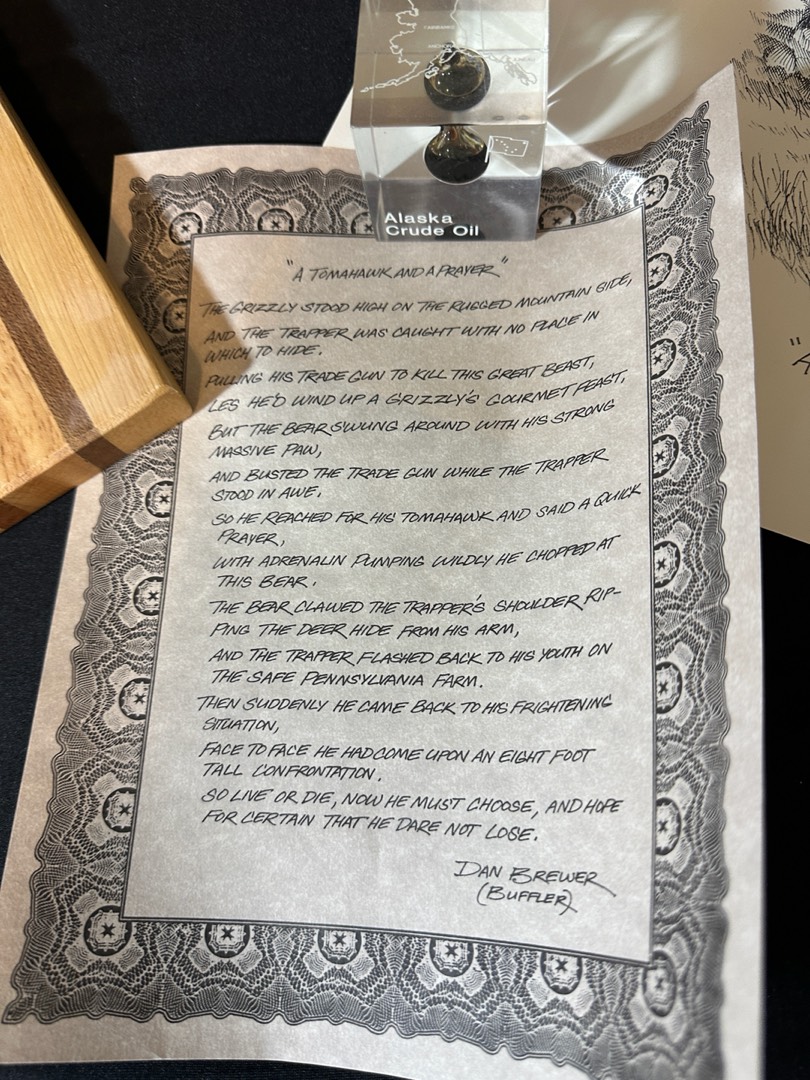 Alaska
Crude Oil
"A TOMAHAWK AND A PRAYER"
THE GRIZZLY STOOD HIGH ON THE RUGGED MOUNTAIN SIDE,
AND THE TRAPPER WAS CAUGHT WITH NO PLACE IN
WHICH TO HIDE.
PULLING HIS TRADE GUN TO KILL THIS GREAT BEAST,
LES HE'D WIND UP A GRIZZLY'S GOURMET FEAST,
BUT THE BEAR SWUNG AROUND WITH HIS STRONG
MASSIVE PAW,
AND BUSTED THE TRADE GUN WHILE THE TRAPPER
STOOD IN AWE.
SO HE REACHED FOR HIS TOMAHAWK AND SAID A QUICK
PRAYER,
WITH ADRENALIN PUMPING WILDLY HE CHOPPED AT
THIS BEAR.
THE BEAR CLAWED THE TRAPPER'S SHOULDER RIP-
PING THE DEER HIDE FROM HIS ARM,
AND THE TRAPPER FLASHED BACK TO HIS YOUTH ON
THE SAFE PENNSYLVANIA FARM.
THEN SUDDENLY HE CAME BACK TO HIS FRIGHTENING
SITUATION,
FACE TO FACE HE HAD COME UPON AN EIGHT FOOT
TALL CONFRONTATION.
SO LIVE OR DIE, NOW HE MUST CHOOSE, AND HOPE
FOR CERTAIN THAT HE DARE NOT LOSE.
DAN BREWER
(BUFFLER)